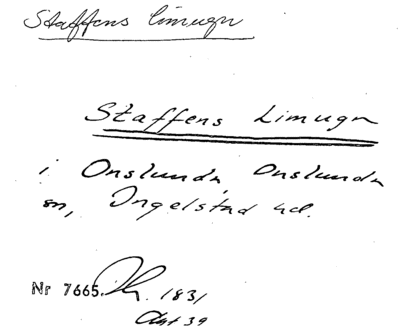 Staffens limugn
Staffens Limugn
i Onslunda, Onslunda
sn, Ingelstad hd.
Nr 7665. 1831
Art 39